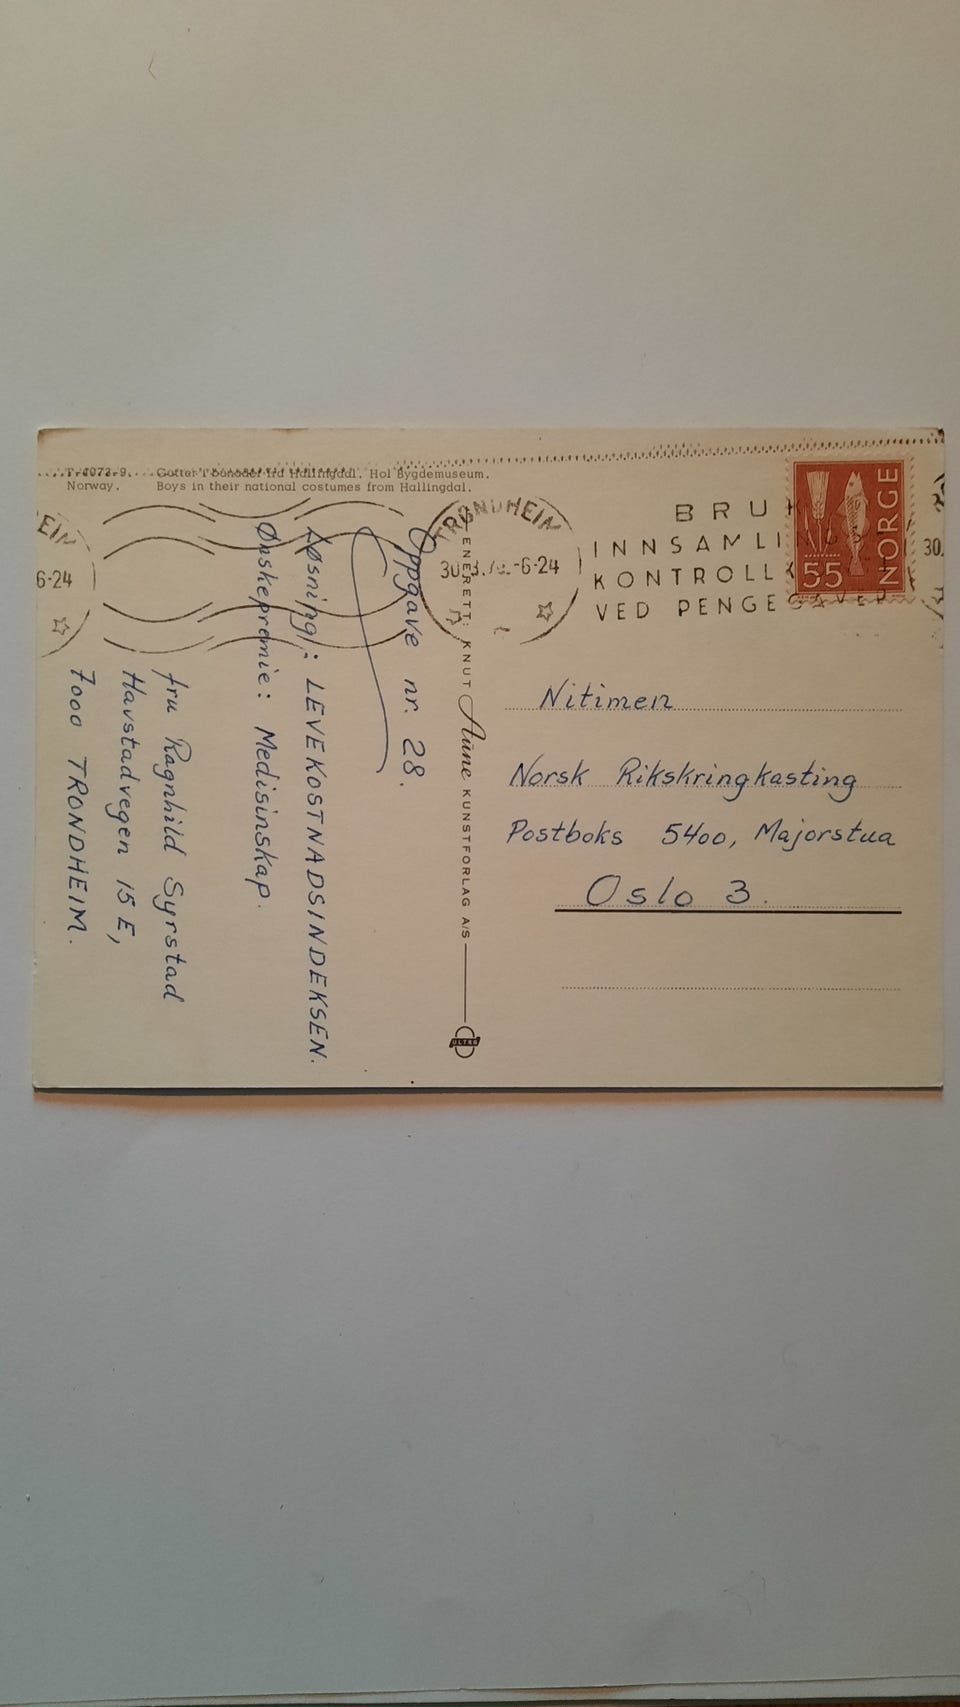 T-4072-9. Gutter i bunader fra Hallingdal. Hol Bygdemuseum.
Norway. Boys in their national costumes from Hallingdal.
Oppgave nr. 28.
Løsning: LEVEKOSTNADSINDEKSEN.
Ønskepremie: Medisinskap.
fru Ragnhild Syrstad
Havstadvegen 15 E,
7000 TRONDHEIM.
ENERETT: KNUT Aune KUNSTFORLAG A/S
ULTRA
TRONDHEIM
-6-24
BRUK
INNSAMLINGS
KONTROLL
VED PENGEGAVER
NORGE
55
30.
EIM
6-24
Nitimen
Norsk Rikskringkasting
Postboks 5400, Majorstua
Oslo 3.